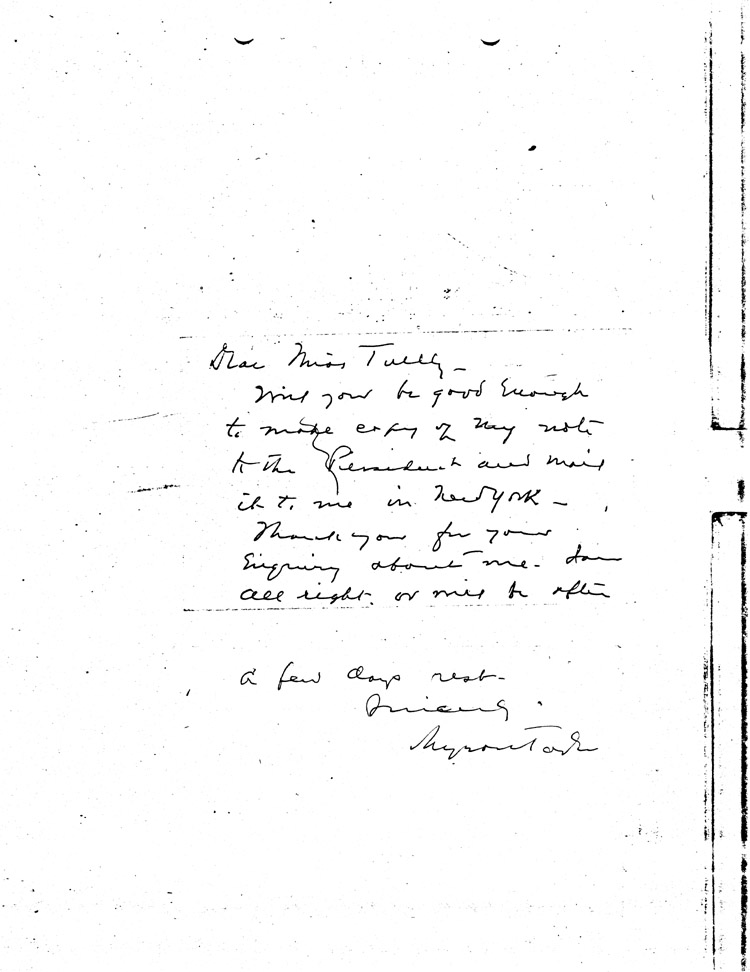 Dear Miss Tully -
Will you be good enough
to make copy of my note
to the President and mail
it to me in New York -
Thank you for your
Enquiry about me. I am
all right. or will be after
a few days rest -
Sincerely.
Myron Taylor